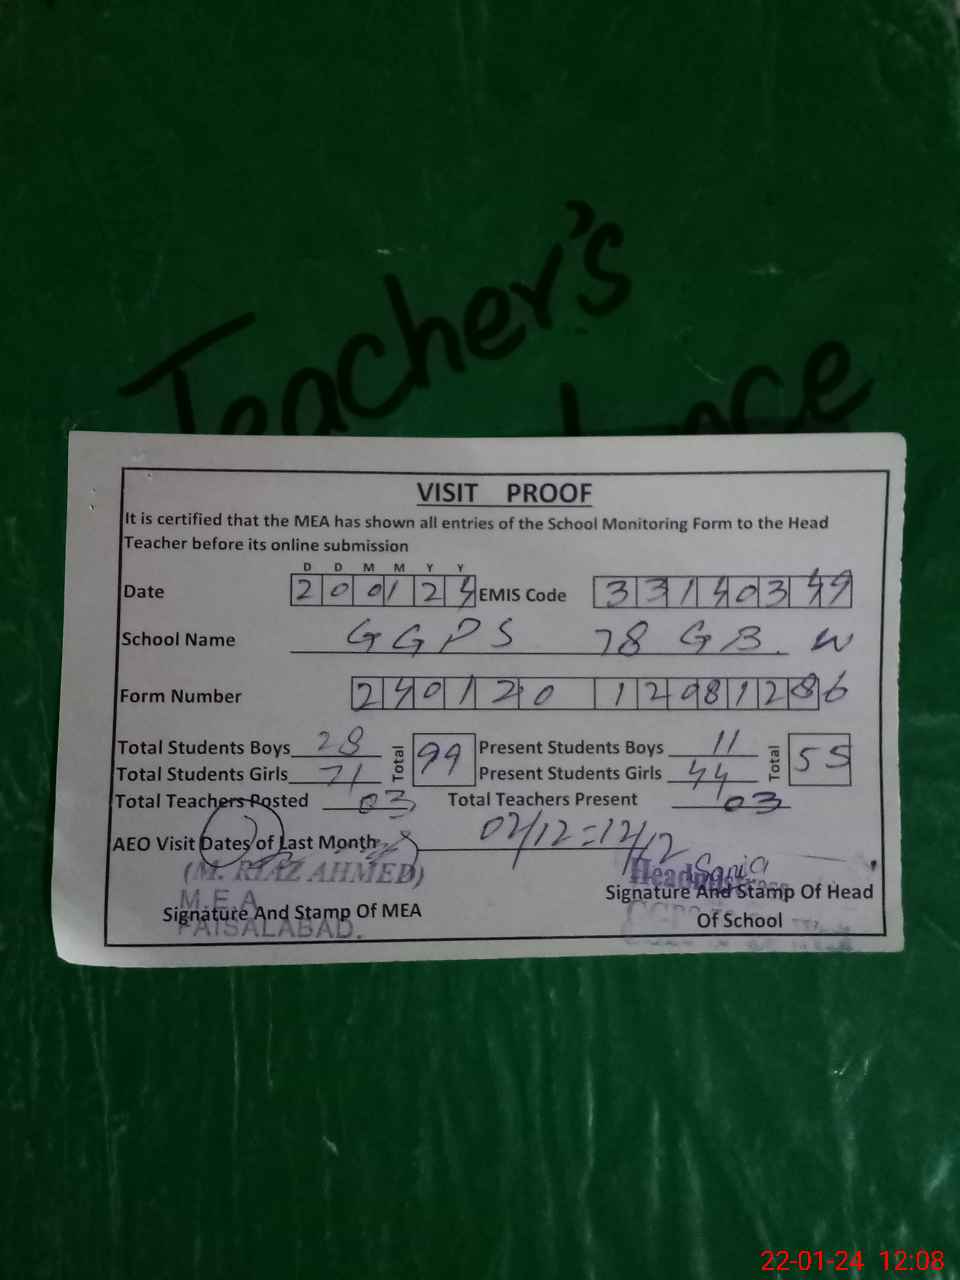 Teacher's
VISIT PROOF
It is certified that the MEA has shown all entries of the School Monitoring Form to the Head
Teacher before its online submission
D D M M Y Y
Date 200124 EMIS Code 33140349
School Name GGPS 78 GB. W
Form Number 240120 12081286
Total Students Boys 28 Total 99 Present Students Boys 11 Total 55
Total Students Girls 71 Present Students Girls 44
Total Teachers Posted 03 Total Teachers Present 03
AEO Visit Dates of Last Month 02/12=12/12
(M. RIAZ AHMED) Headmistress Sania
M.E.A Signature And Stamp Of Head
Signature And Stamp Of MEA
FAISALABAD. Of School
22-01-24 12:08